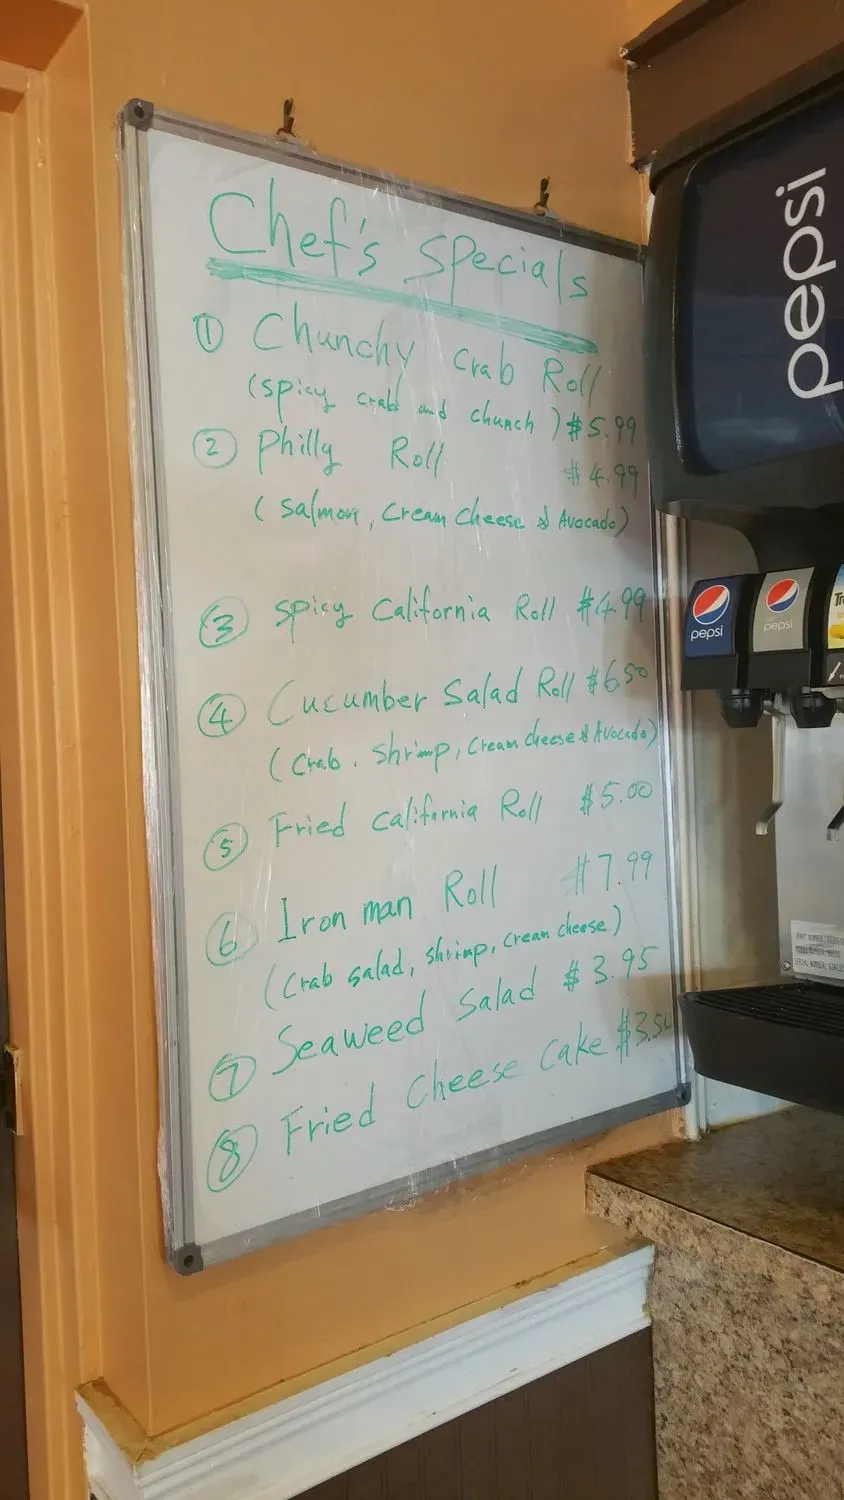 Chef's Specials
① Chunchy Crab Roll
(Spicy crab and chunch) $5.99
② Philly Roll $4.99
(Salmon, Cream Cheese & Avocado)
③ Spicy California Roll $4.99
④ Cucumber Salad Roll $6.50
(Crab, Shrimp, Cream cheese & Avocado)
⑤ Fried California Roll $5.00
⑥ Iron man Roll $7.99
(Crab salad, shrimp, cream cheese)
⑦ Seaweed Salad $3.95
⑧ Fried Cheese Cake $3.50
pepsi
pepsi
pepsi